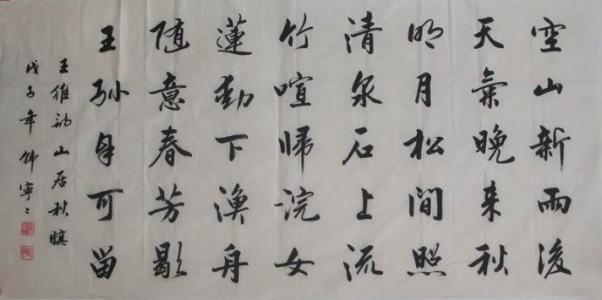 空山新雨後
天氣晚来秋
明月松間照
清泉石上流
竹喧歸浣女
蓮動下漁舟
随意春芳歇
王孫自可留
王維詩山居秋暝
戊子年